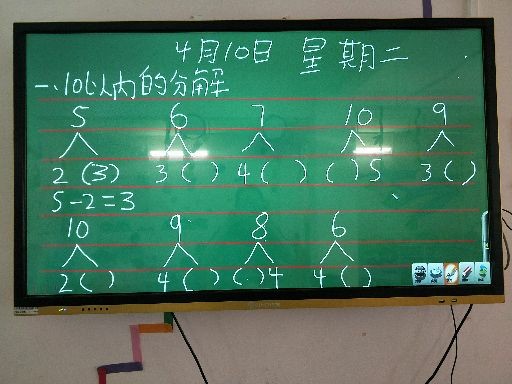 4月10日 星期二
一、10以内的分解
5 6 7 10 9
2 (3) 3 ( ) 4 ( ) ( ) 5 3 ( )
5-2=3
10 9 8 6
2 ( ) 4 ( ) ( ) 4 4 ( )